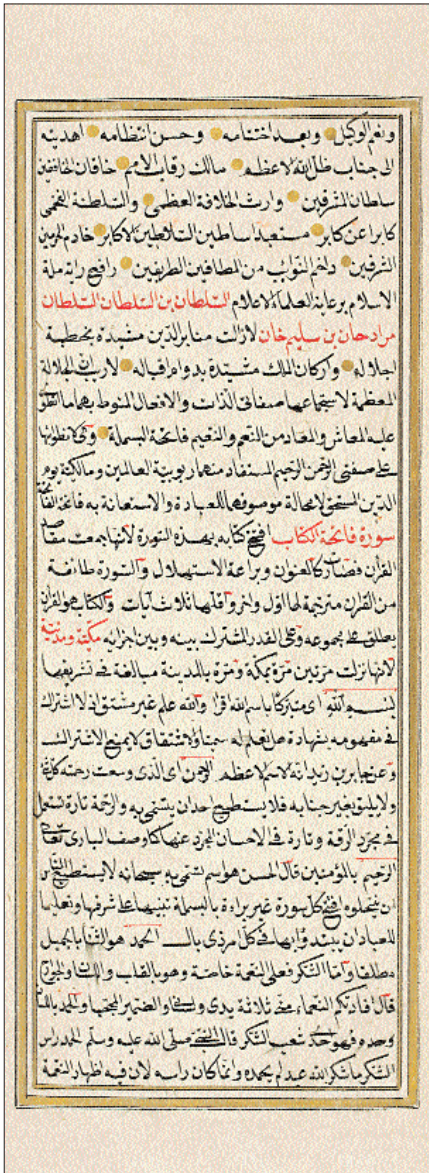 ونعم الوكيل وبعد اختتامه وحسن انتظامه اهديته
الى جناب ظل الله الاعظم مالك رقاب الامم خاقان الخافقين
سلطان المشرقين وارث الخلافة العظمى والسلطنة الفخمى
كابرا عن كابر مستعبد اساطين السلاطين الاكابر خادم الحرمين
الشريفين داخر الثواب من المطافين الطريفين رافع راية ملة
الاسلام برعاية العلماء الاعلام السلطان بن السلطان السلطان
مراد خان بن سليم خان لا زالت منابر الدين مشيدة بخطبة
اجلاله واركان الملك مشيدة بدوام اقباله
المعظمة لاستجماعها صفاتي الذات والافعال المنوط بهما
عليه المعاش والمعاد من النعم والنعيم فاتحة البسملة
على صفتي الرحمن الرحيم المستفاد منهما ربوبية العالمين ومالكية يوم
الدين المستحق لا محالة موصوفهما للعبادة والاستعانة به فاتحة
سورة فاتحة الكتاب افتتح كتابه بهذه السورة لانها جمعت مقاصد
القران فصارت كالعنوان وبراعة الاستهلال والسورة طائفة
من القران مترجمة لها اول واخر واقلها ثلاث ايات والكتاب هو القران
يطلق على مجموعه وعلى القدر المشترك بينه وبين اجزائه مكية ومدنية
لانها نزلت مرتين مرة بمكة ومرة بالمدينة مبالغة في تشريفها
بسم الله اى متبركا باسم الله اقرا والله علم غير مشتق اذ لا اشتراك
في مفهومه بشهادة هل تعلم له سميا والاشتقاق لا يمنع الاشتراك
وعن جابر بن زيد انه الاسم الاعظم الرحمن اى الذى وسعت رحمته كل
ولا يليق بغير جنابه فلا يستطيع احد ان يتسمى به والرحمة تارة تستعمل
في مجرد الرقة وتارة في الاحسان المجرد عنها كما وصف البارى تعالى
الرحيم بالمؤمنين قال الحسن هو اسم تسمى به سبحانه لا يستطيع الناس
ان ينتحلوه افتتح كل سورة غير براءة بالبسملة تنبيها على شرفها وتعليما
للعباد ان يبتدؤا بها في كل امر ذى بال الحمد هو الثناء بالجميل
مطلقا واما الشكر فعلى النعمة خاصة وهو بالقلب واللسان والجوارح
قال افادتكم النعماء منى ثلاثة يدى ولسانى والضمير المحجبا والحمد باللسان
وحده فهو احد شعب الشكر قال النبى صلى الله عليه وسلم الحمد راس
الشكر ما شكر الله عبد لم يحمده وانما كان راسه لان فيه اظهار النعمة